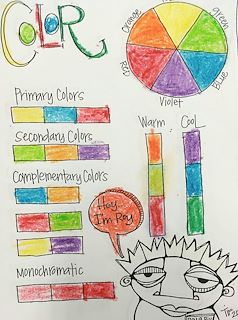 COLOR
Orange
green
RED
BLUE
Violet
Primary Colors
Secondary Colors
Complementary Colors
Monochromatic
Warm
Cool
Hey
I'm Roy